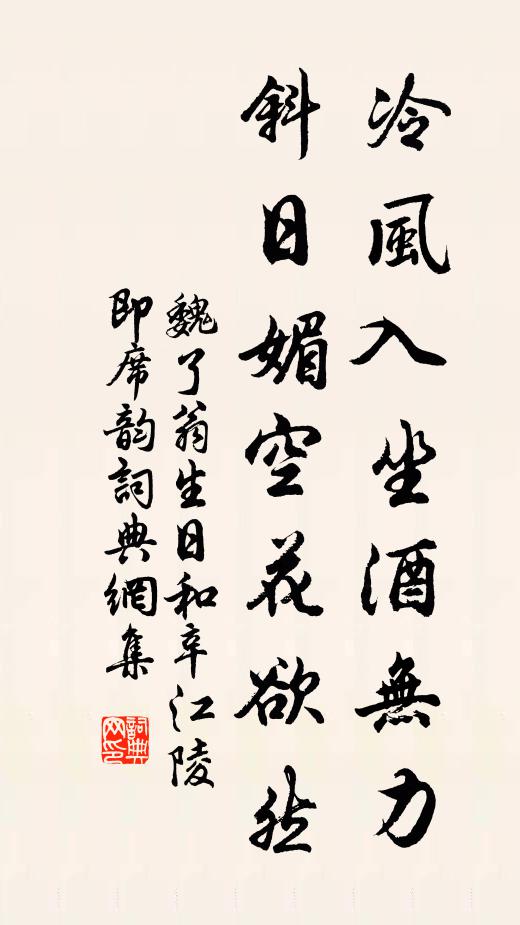 冷風入坐酒無力
斜日媚空花欲然
魏了翁生日和辛江陵
即席韵詞典網集
詞典網印